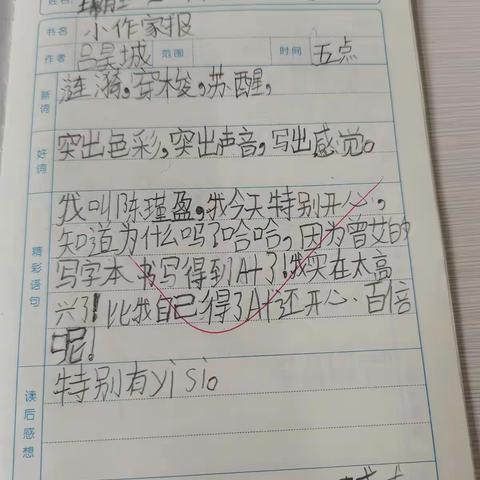 姓名:
书名 小作家报
作者 吕昊城 范围 时间 五点
新词 涟漪,穿梭,苏醒,
好词 突出色彩,突出声音,写出感觉。
精彩语句 我叫陈瑾盈,我今天特别开心,
知道为什么吗?哈哈,因为曾艾的
写字本书写得到A+了!我实在太高
兴了!比我自己得了A+还开心百倍
呢!
读后感想 特别有yi si。